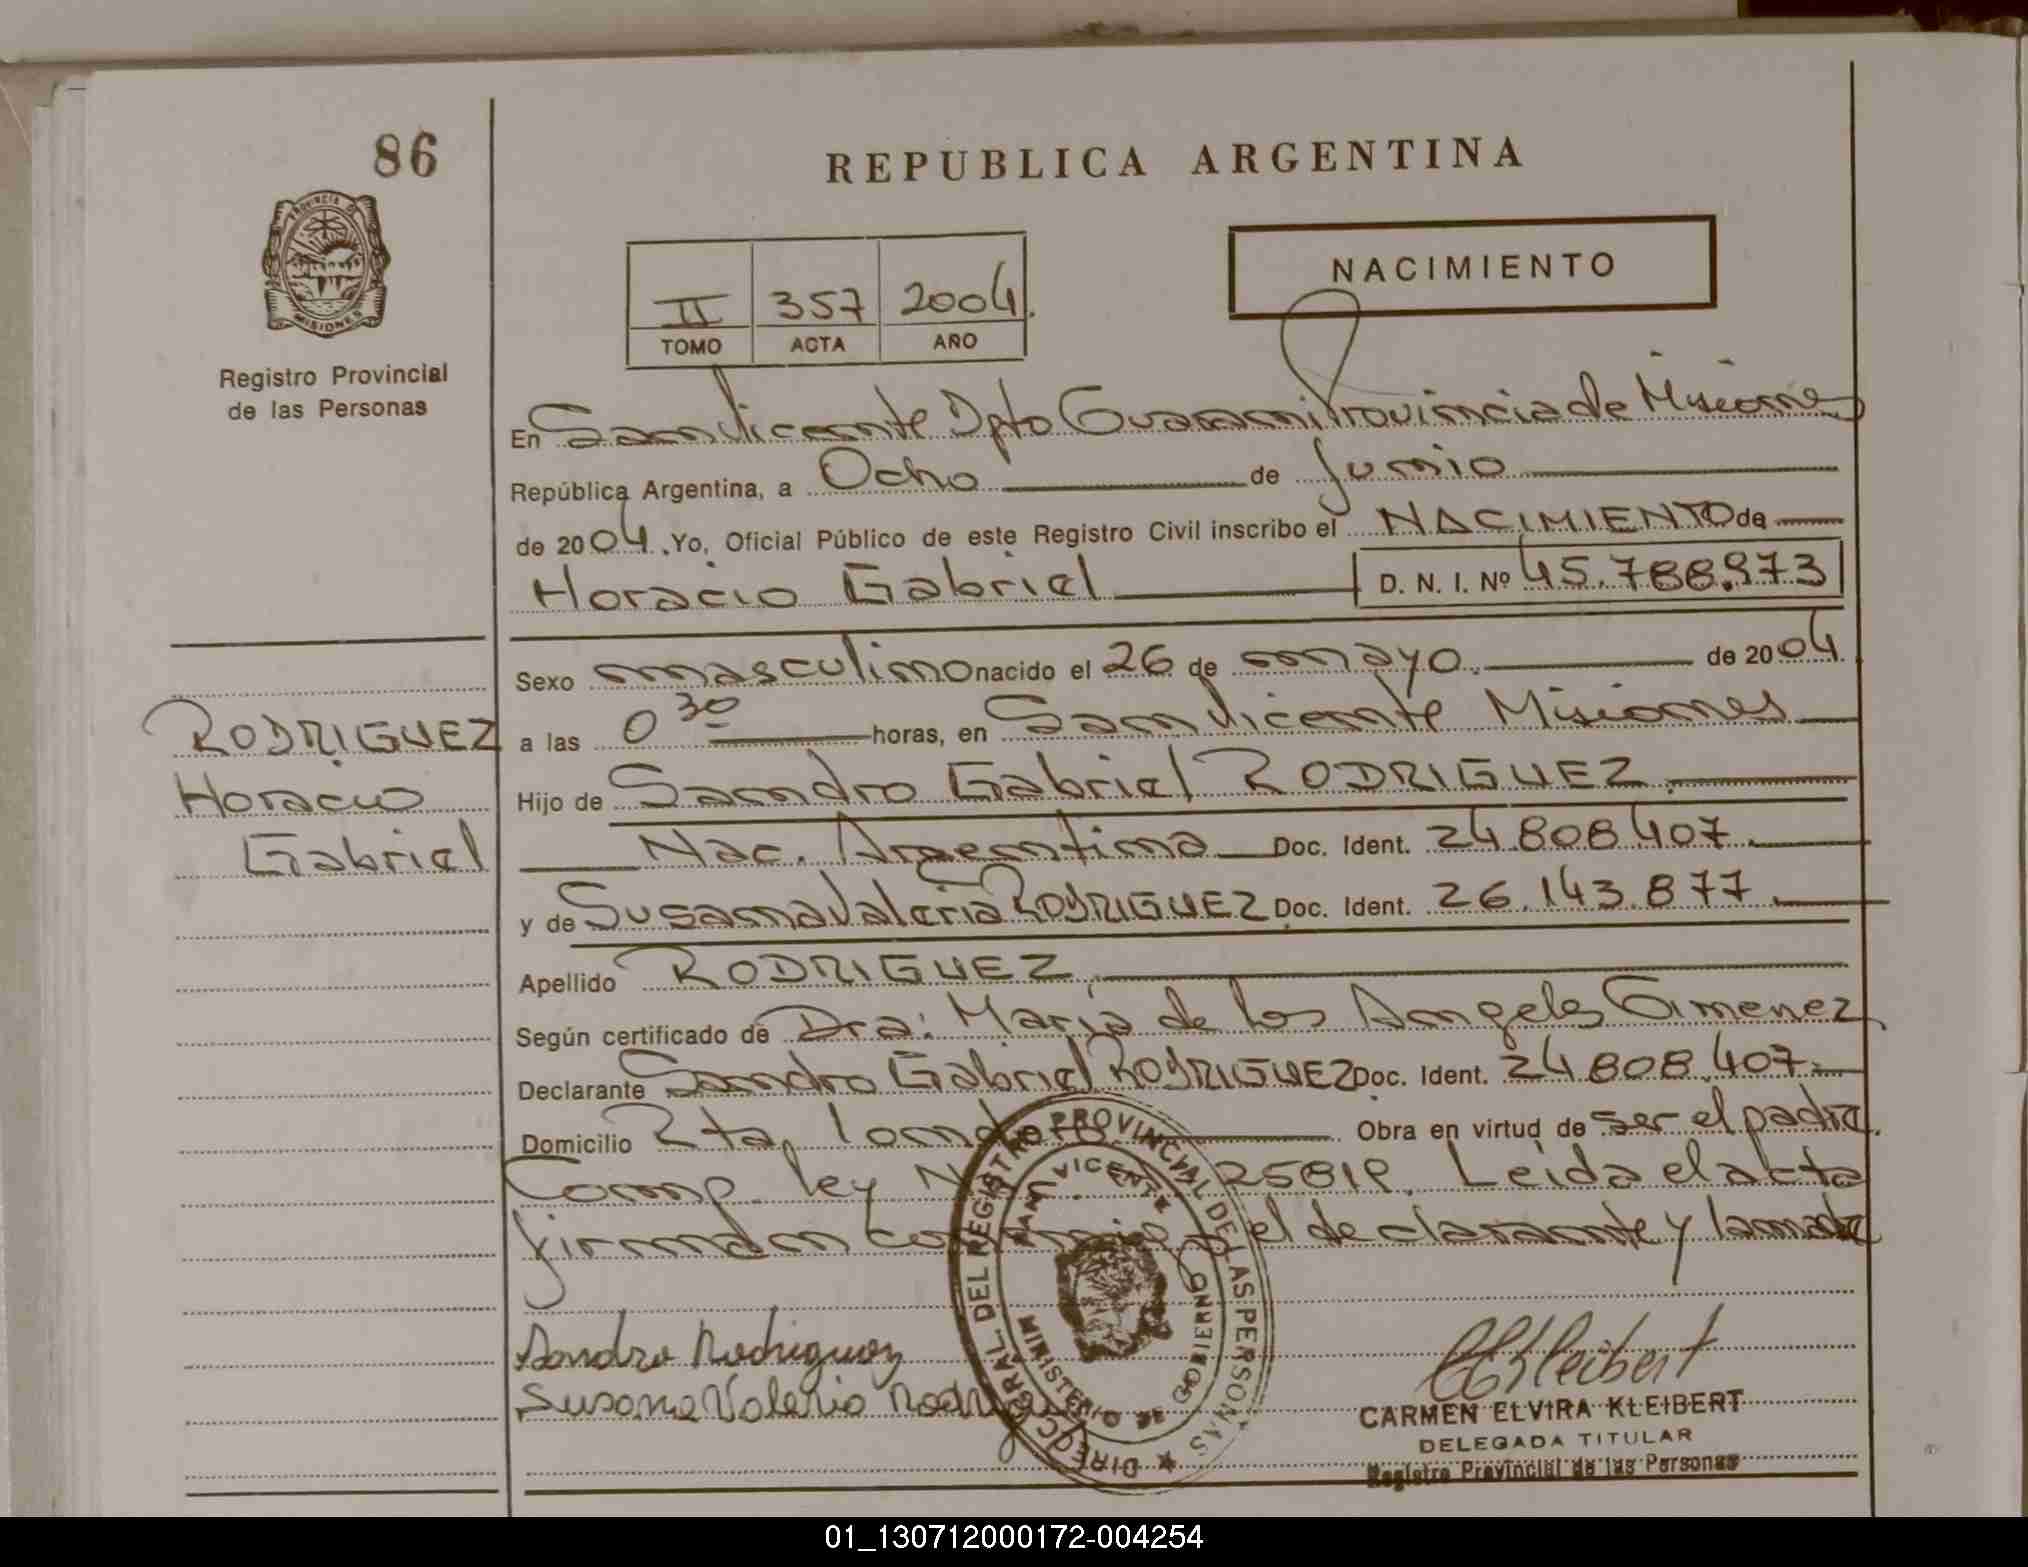 86
REPUBLICA ARGENTINA
PROVINCIA DE
MISIONES
Registro Provincial
de las Personas
II 357 2004
TOMO ACTA AÑO
NACIMIENTO
En San Vicente Dpto Guarani Provincia de Misiones
República Argentina, a Ocho de Junio
de 2004. Yo, Oficial Público de este Registro Civil inscribo el NACIMIENTO de
Horacio Gabriel D. N. I. Nº 45.788.973
Sexo masculino nacido el 26 de mayo. de 2004.
RODRIGUEZ
Horacio
Gabriel
a las 0 30 horas, en San Vicente Misiones
Hijo de Sandro Gabriel RODRIGUEZ.
Nac. Argentina Doc. Ident. 24.808.407.
y de Susana Valeria RODRIGUEZ Doc. Ident. 26.143.877.
Apellido RODRIGUEZ.
Según certificado de Dra: Maria de los Angeles Gimenez
Declarante Sandro Gabriel RODRIGUEZ Doc. Ident. 24.808.407.
Domicilio Rta. Obra en virtud de ser el padre.
Comp. ley 25819. Leida el acta
firman el declarante y la madre
Sandro Rodriguez
Susana Valeria
DIRECC GRAL DEL REGISTRO PROVINCIAL DE LAS PERSONAS
SAN VICENTE
MINISTERIO DE GOBIERNO
CEKleibert
CARMEN ELVIRA KLEIBERT
DELEGADA TITULAR
Registro Provincial de las Personas
01_130712000172-004254